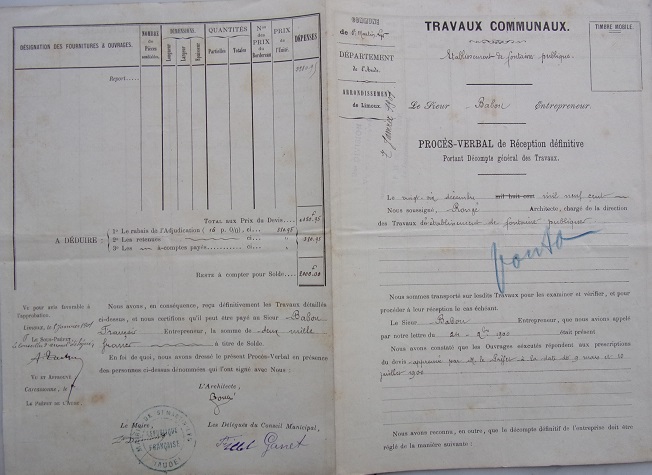 DÉSIGNATION DES FOURNITURES & OUVRAGES.
NOMBRE de Pièces semblables.
DIMENSIONS.
Longueur
Largeur
Épaisseur
QUANTITÉS
Partielles
Totales
Nos des PRIX du Bordereau
PRIX de l'Unité.
DÉPENSES
Report
TOTAL AUX PRIX DU DEVIS
A DÉDUIRE :
1° Le rabais de l'Adjudication ( 16 p. 0/0), ci...
2° Les retenues ci...
3° Les à-comptes payés ci...
RESTE à compter pour Solde.
2000.00
Vu pour avis favorable à l'approbation.
Nous avons, en conséquence, reçu définitivement les Travaux détaillés
ci-dessus, et nous certifions qu'il peut être payé au Sieur Babou
François Entrepreneur, la somme de deux mille
francs à titre de Solde.
En foi de quoi, nous avons dressé le présent Procès-Verbal en présence
des personnes ci-dessus dénommées qui l'ont signé avec Nous :
VU ET APPROUVÉ
CARCASSONNE, le
LE PRÉFET DE L'AUDE,
L'Architecte,
Rougé
Le Maire,
Les Délégués du Conseil Municipal,
RÉPUBLIQUE FRANÇAISE
(AUDE)
COMMUNE
DÉPARTEMENT
de l'Aude.
ARRONDISSEMENT
de Limoux
TRAVAUX COMMUNAUX.
TIMBRE MOBILE.
Etablissement de fontaine publique.
Le Sieur Babou Entrepreneur.
PROCÈS-VERBAL de Réception définitive
Portant Décompte général des Travaux.
Le vingt-six décembre mil huit cent mil neuf cent
Nous soussigné, Rougé Architecte, chargé de la direction
des Travaux d'établissement de fontaine publique
Nous sommes transporté sur lesdits Travaux pour les examiner et vérifier, et pour
procéder à leur réception le cas échéant.
Le Sieur Babou Entrepreneur, que nous avions appelé
par notre lettre du 24 Xbre 1900 était présent
Nous avons constaté que les Ouvrages exécutés répondent aux prescriptions
du devis approuvé par M. le Préfet à la date du 9 mars et 12
juillet 1900
Nous avons reconnu, en outre, que le décompte définitif de l'entreprise doit être
réglé de la manière suivante :